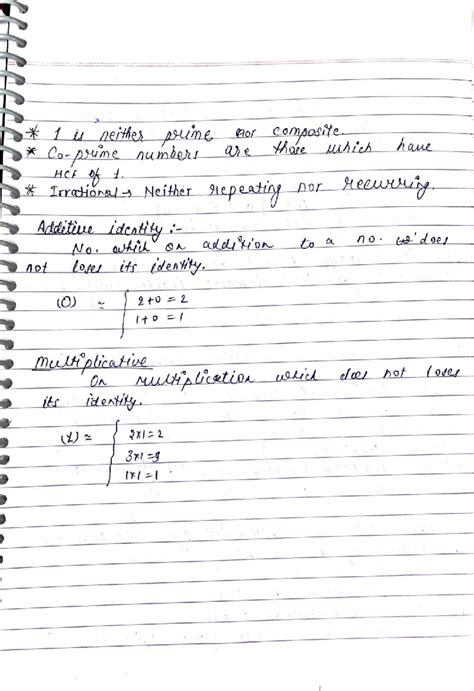 * 1 is neither prime nor composite.
* Co-prime numbers are those which have
HCF of 1.
* Irrational → Neither repeating nor recurring.
Additive identity :-
No. which on addition to a no. does
not loses its identity.
(0) ≃ { 2+0 = 2
1+0 = 1
Multiplicative
On multiplication which does not loses
its identity.
(1) ≃ { 2x1=2
3x1=3
1x1=1